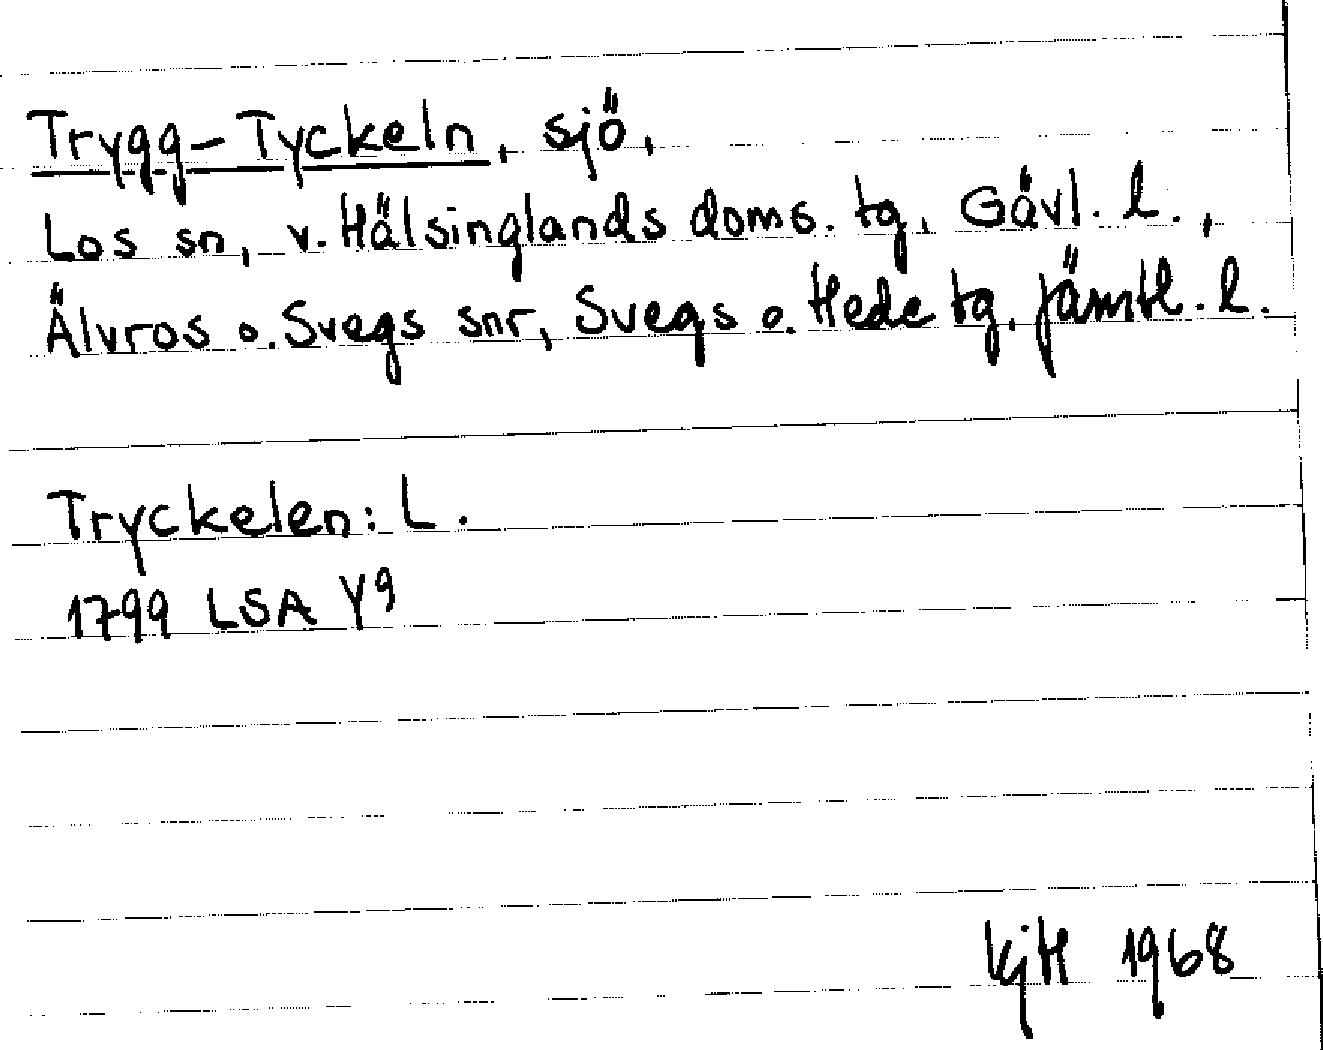 Trygg-Tyckeln, sjö,
Los sn, v. Hälsinglands doms. tg, Gävl. l.,
Älvros o. Svegs snr, Svegs o. Hede tg, Jämtl. l.
Tryckelen: L.
1799 LSA Y9
KjH 1968